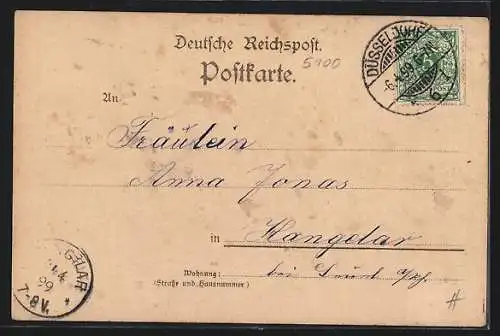 Deutsche Reichspost.
Postkarte.
5900
An
DÜSSELDORF
Fräulein
Anna Jonas
in Hangelar
Wohnung:
(Straße und Hausnummer)
bei
99
7-8V.